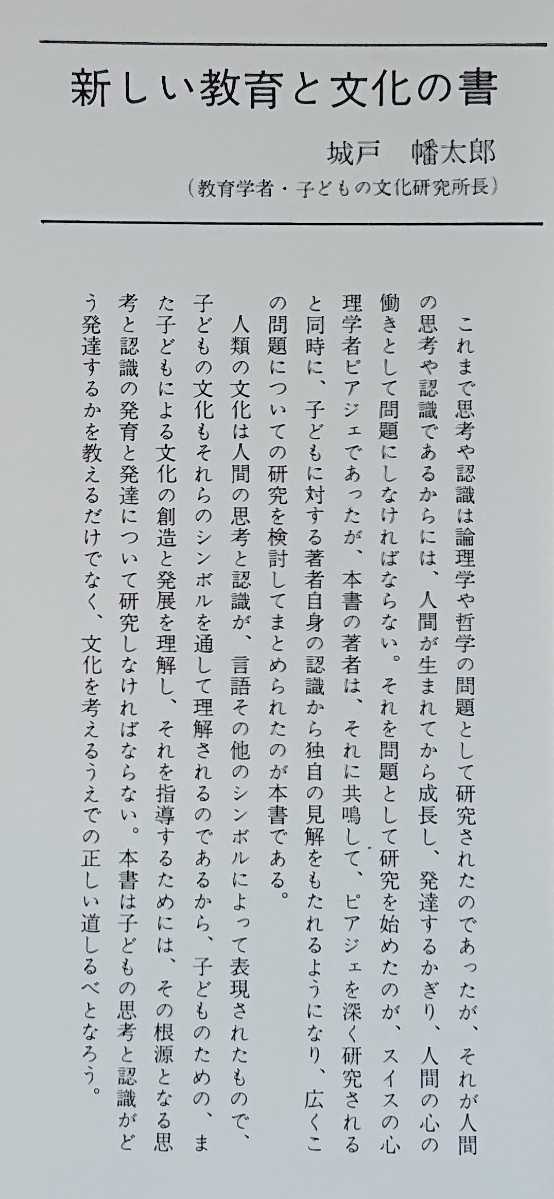 新しい教育と文化の書
城戸　幡太郎
（教育学者・子どもの文化研究所長）
これまで思考や認識は論理学や哲学の問題として研究されたのであったが、それが人間
の思考や認識であるからには、人間が生まれてから成長し、発達するかぎり、人間の心の
働きとして問題にしなければならない。それを問題として研究を始めたのが、スイスの心
理学者ピアジェであったが、本書の著者は、それに共鳴して、ピアジェを深く研究される
と同時に、子どもに対する著者自身の認識から独自の見解をもたれるようになり、広くこ
の問題についての研究を検討してまとめられたのが本書である。
人類の文化は人間の思考と認識が、言語その他のシンボルによって表現されたもので、
子どもの文化もそれらのシンボルを通して理解されるのであるから、子どものための、ま
た子どもによる文化の創造と発展を理解し、それを指導するためには、その根源となる思
考と認識の発育と発達について研究しなければならない。本書は子どもの思考と認識がど
う発達するかを教えるだけでなく、文化を考えるうえでの正しい道しるべとなろう。